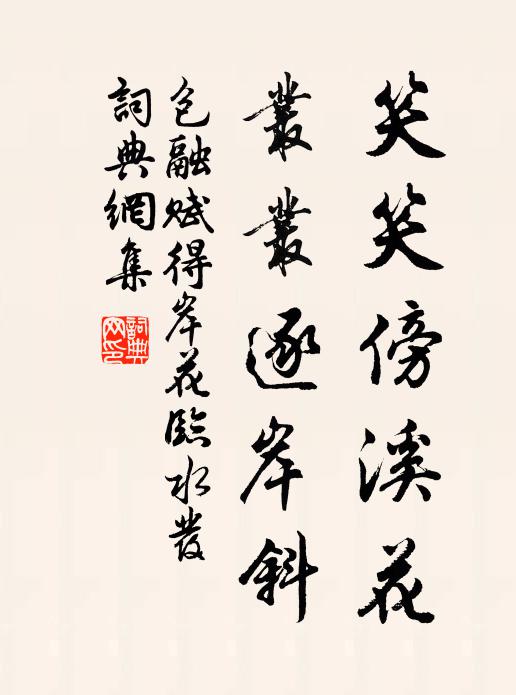 笑笑傍溪花
叢叢逐岸斜
包融賦得岸花臨水發
詞典網集
詞典網印